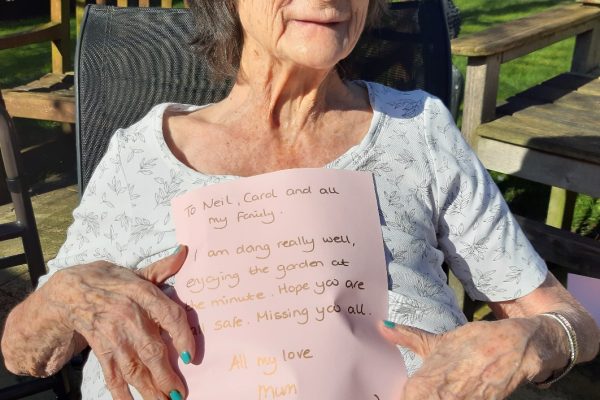 To Neil, Carol and all
my Family.
I am doing really well,
enjoying the garden at
the minute. Hope you are
all safe. Missing you all.
All my love
Mum